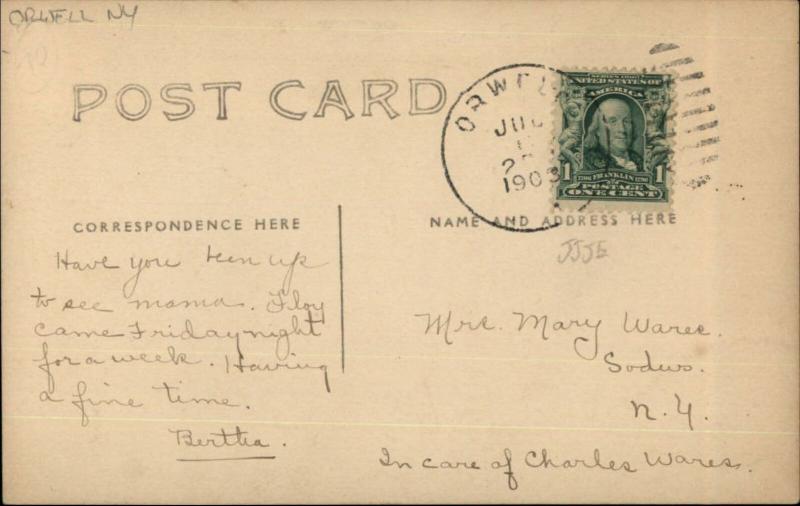 ORWELL NY
POST CARD
ORWELL
JUL
1903
SERIES 1902
UNITED STATES OF
AMERICA
1 FRANKLIN 1
POSTAGE
ONE CENT
CORRESPONDENCE HERE
NAME AND ADDRESS HERE
JJJE
Have you been up
to see mama. Floy
came Friday night
for a week. Having
a fine time.
Bertha.
Mrs. Mary Wares.
Sodus.
N.Y.
In care of Charles Wares.